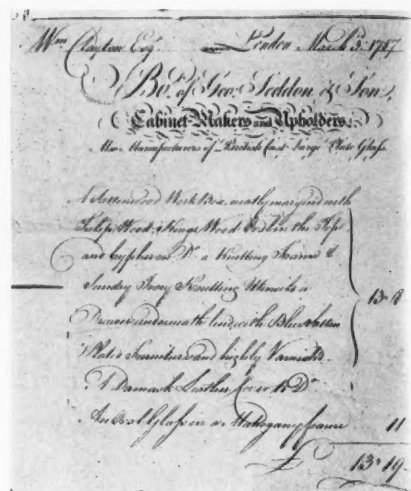 Wm Clayton Esqr London March 3. 1787
Bot. of Geo: Seddon & Son
Cabinet-Makers and Upholders.
Also Manufacturers of British Cast Large Plate Glass
A Sattinwood Work Box neatly margind with
Tulip Wood & Kings Wood in the Top
and Cyphers on Do. a Knotting Frame &
Sundry Ivory Knotting Utensils a
Drawer underneath lind with Blue Sattin
Plated Furniture and highly Varnish'd
13 8
A Damask Leather Cover to Do
An Oval Glass in a Mahogany frame 11
£ 13 19